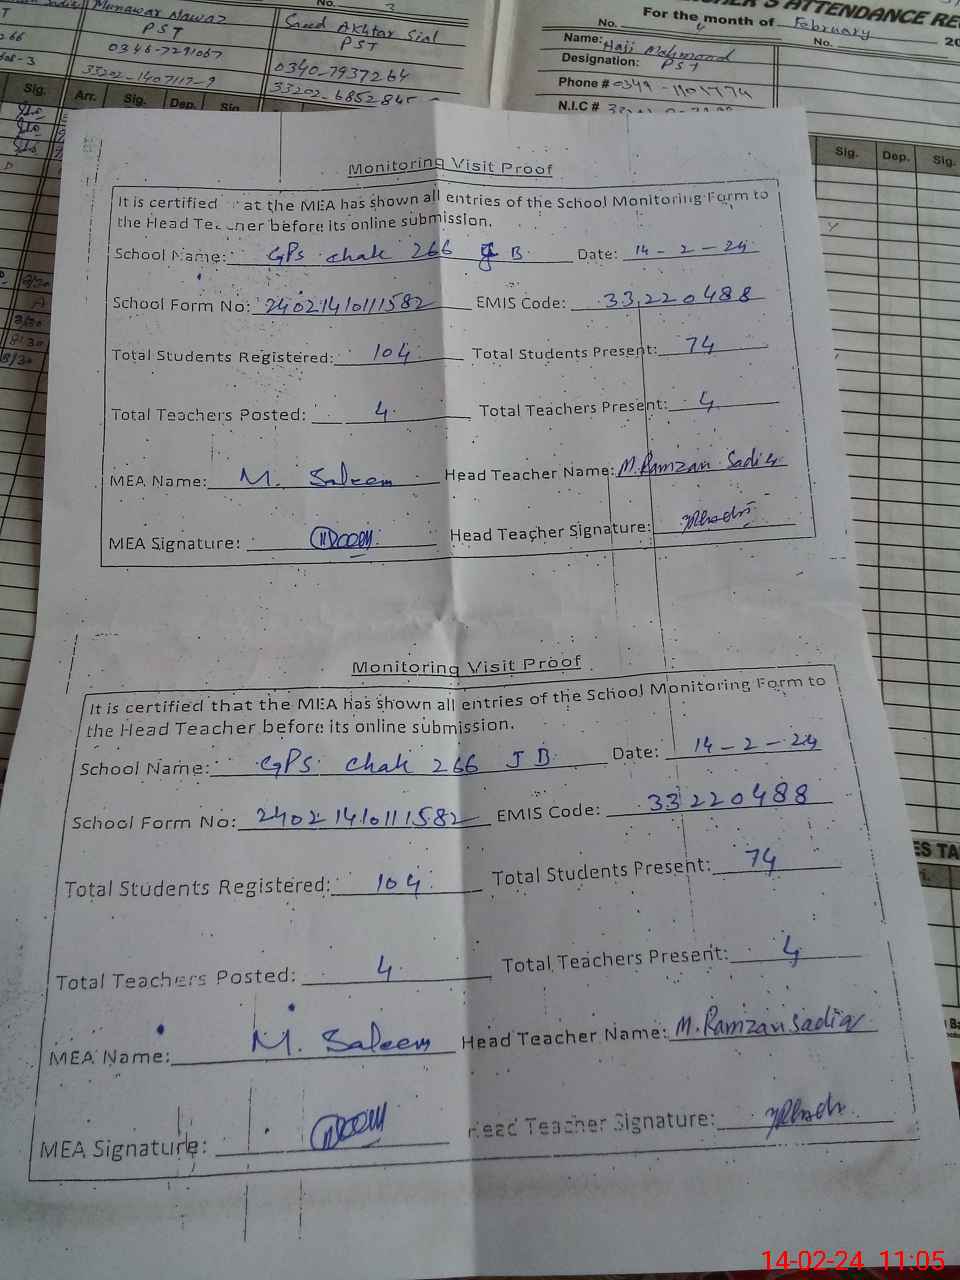 No.
Munawar Nawaz
PST
0346-7291067
33202-1407117-9
Saeed Akhtar Sial
PST
0340-7937264
33202-6852845
Sig. Arr. Sig. Dep. Sig.
ATTENDANCE
For the month of February
No. No.
Name: Haji Mahmood
Designation: PST
Phone #
N.I.C #
Sig. Dep. Sig.
Monitoring Visit Proof
It is certified at the MEA has shown all entries of the School Monitoring Form to
the Head Teacher before its online submission.
School Name: GPS chak 266 J B. Date: 14-2-24
School Form No: 24021410111582 EMIS Code: 33220488
Total Students Registered: 104 Total Students Present: 74
Total Teachers Posted: 4 Total Teachers Present: 4
MEA Name: M. Saleem Head Teacher Name: M.Ramzan Sadiq
MEA Signature: Head Teacher Signature:
Monitoring Visit Proof
It is certified that the MEA has shown all entries of the School Monitoring Form to
the Head Teacher before its online submission.
School Name: GPS chak 266 J B Date: 14-2-24
School Form No: 24021410111582 EMIS Code: 33220488
Total Students Registered: 104 Total Students Present: 74
Total Teachers Posted: 4 Total Teachers Present: 4
MEA Name: M. Saleem Head Teacher Name: M.Ramzan Sadiq
MEA Signature: Head Teacher Signature:
14-02-24 11:05